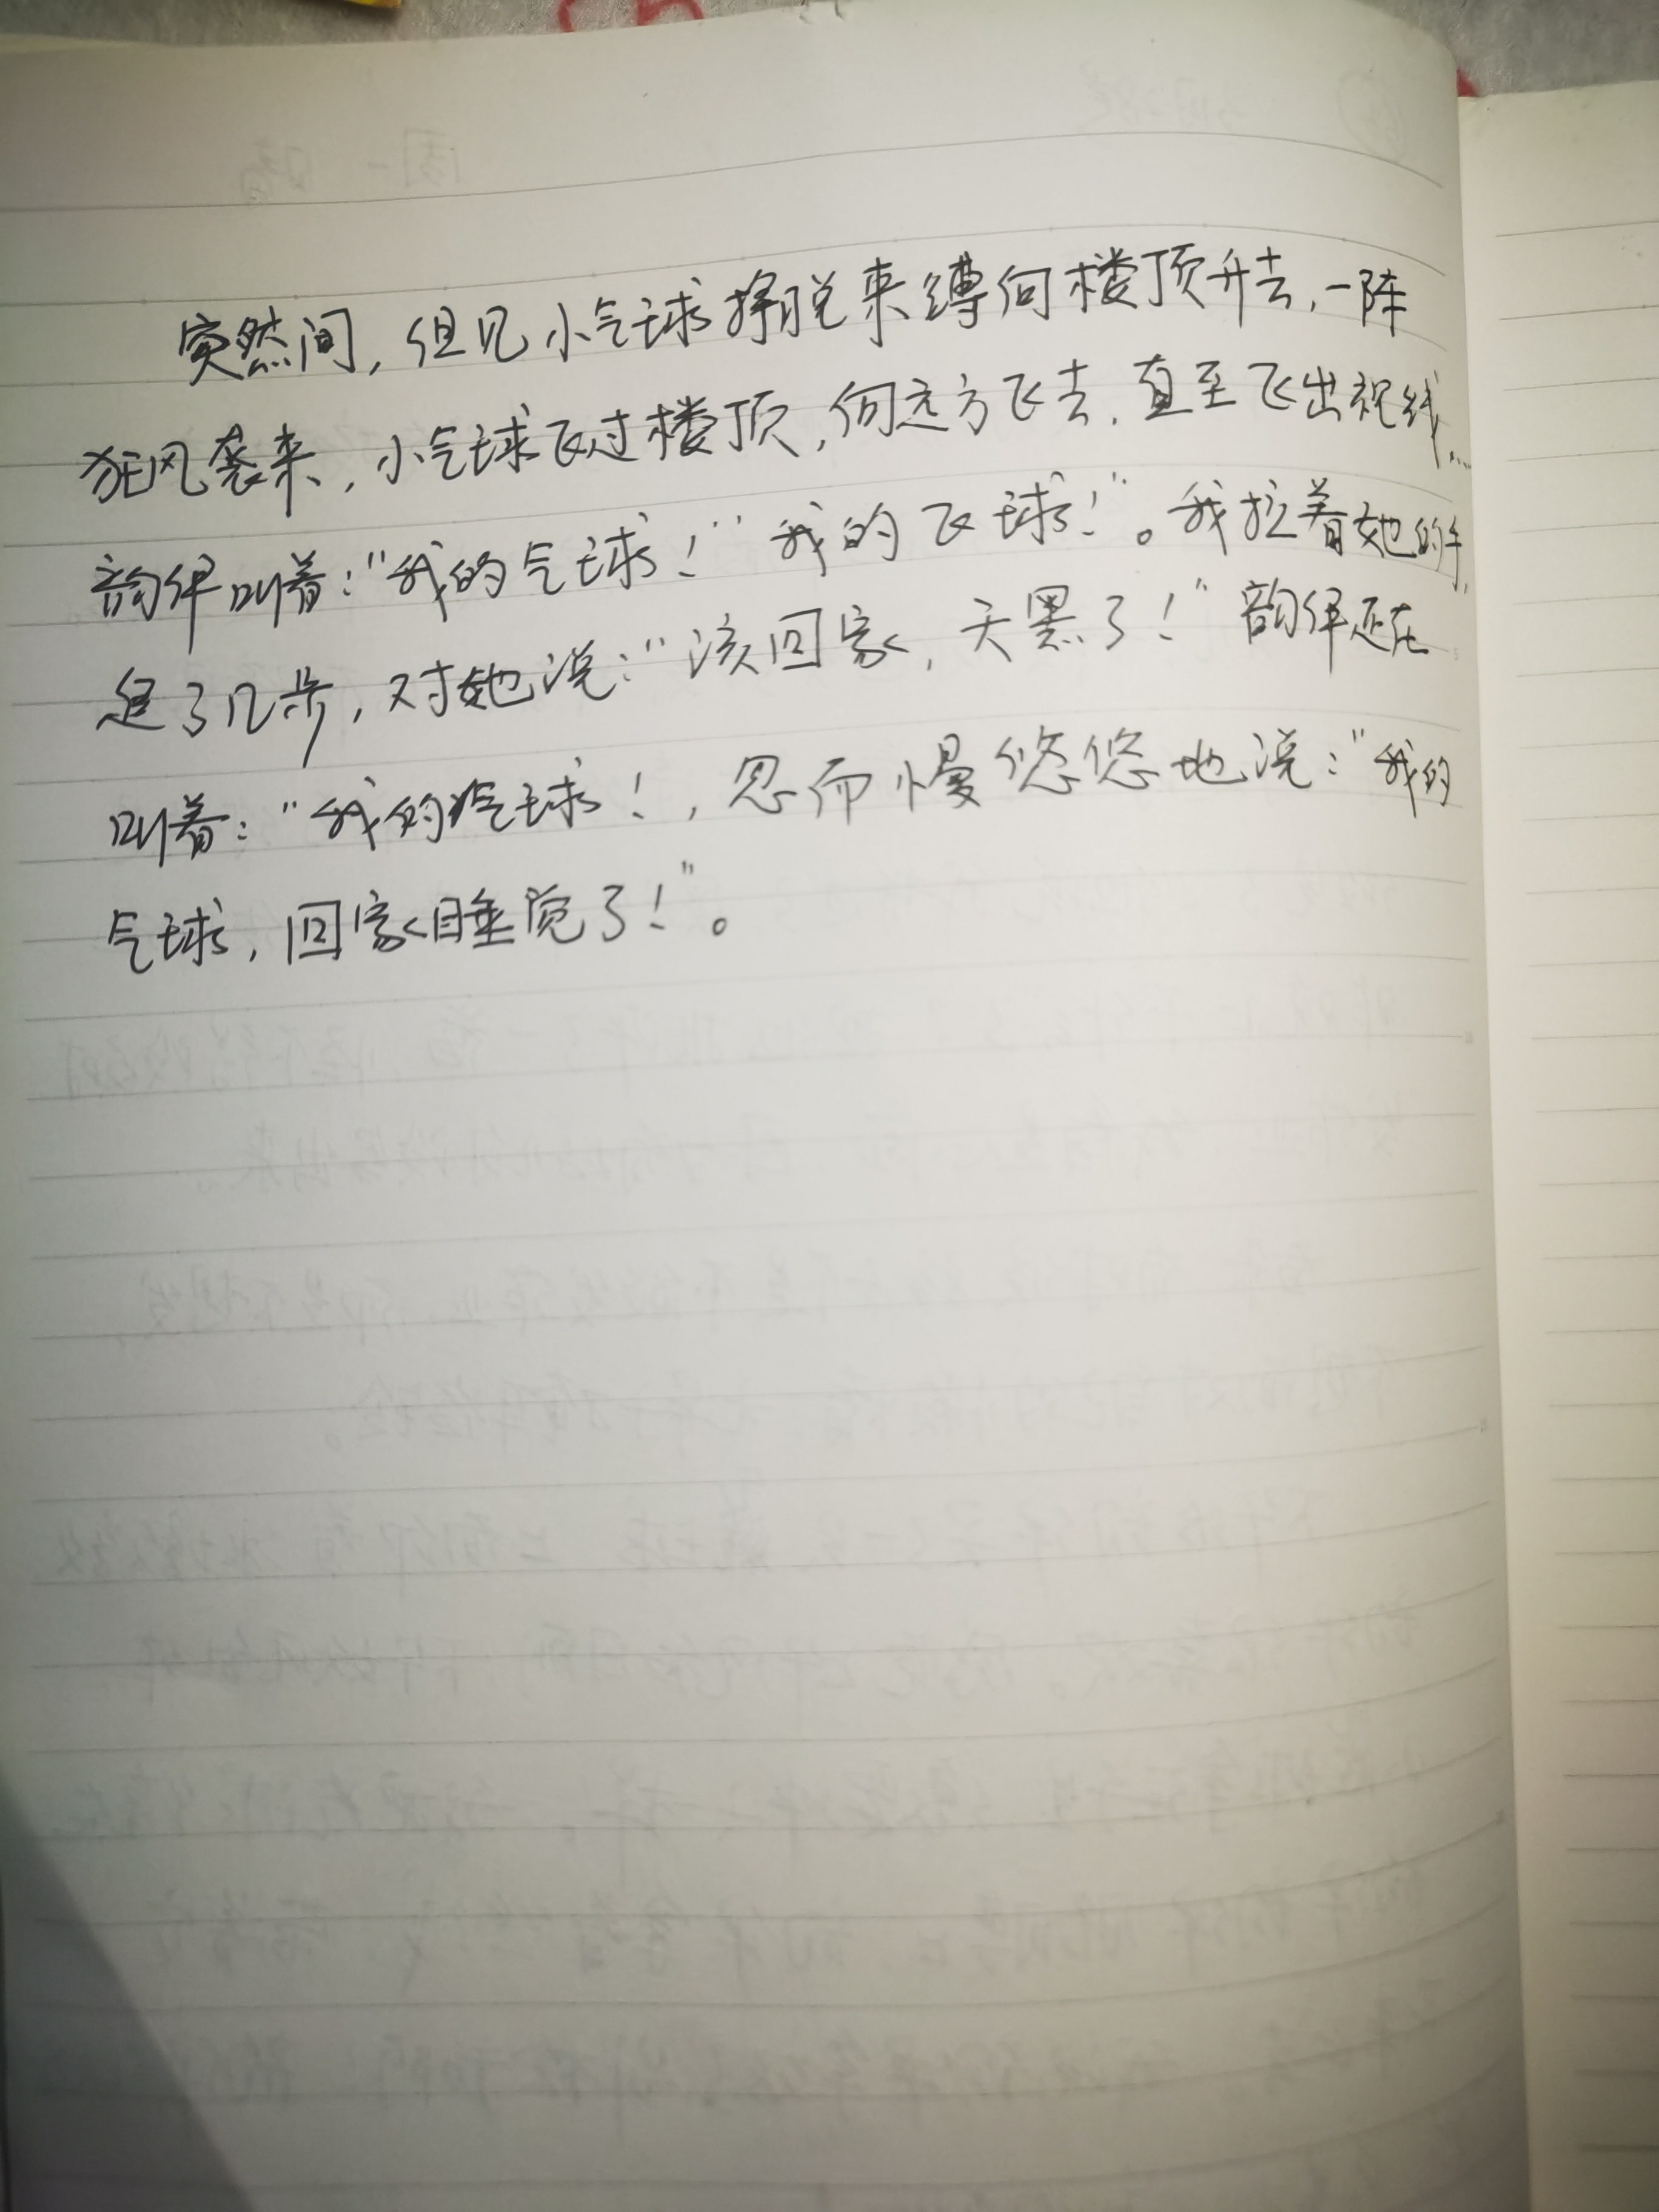 突然间，但见小气球挣脱束缚向楼顶升去，一阵
狂风袭来，小气球飞过楼顶，向远方飞去，直至飞出视线……
韵伊叫着：“我的气球！”“我的飞球！”。我拉着她的手，
走了几步，对她说：“该回家，天黑了！”韵伊还在
叫着：“我的气球！，忽而慢悠悠地说：“我的
气球，回家睡觉了！”。